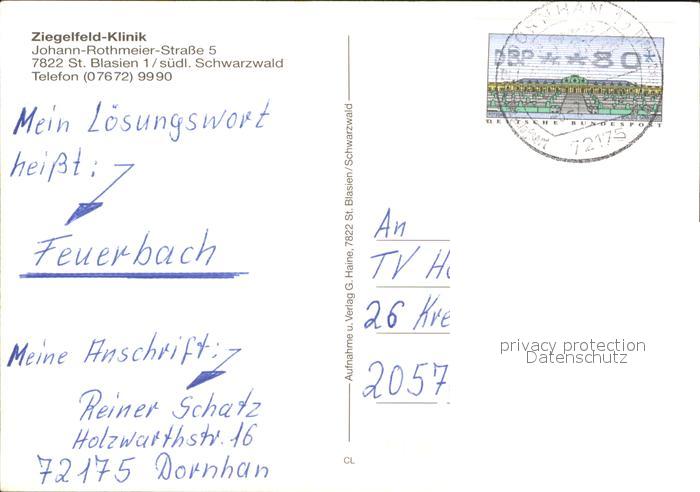 Ziegelfeld-Klinik
Johann-Rothmeier-Straße 5
7822 St. Blasien 1/südl. Schwarzwald
Telefon (07672) 9990
Mein Lösungswort
heißt:
Feuerbach
Meine Anschrift:
Reiner Schatz
Holzwarthstr. 16
72175 Dornhan
Aufnahme u. Verlag G. Haine, 7822 St. Blasien/Schwarzwald
CL
DBP**80*
DEUTSCHE BUNDESPOST
72175
An
TV
26 Kre
2057
privacy protection
Datenschutz